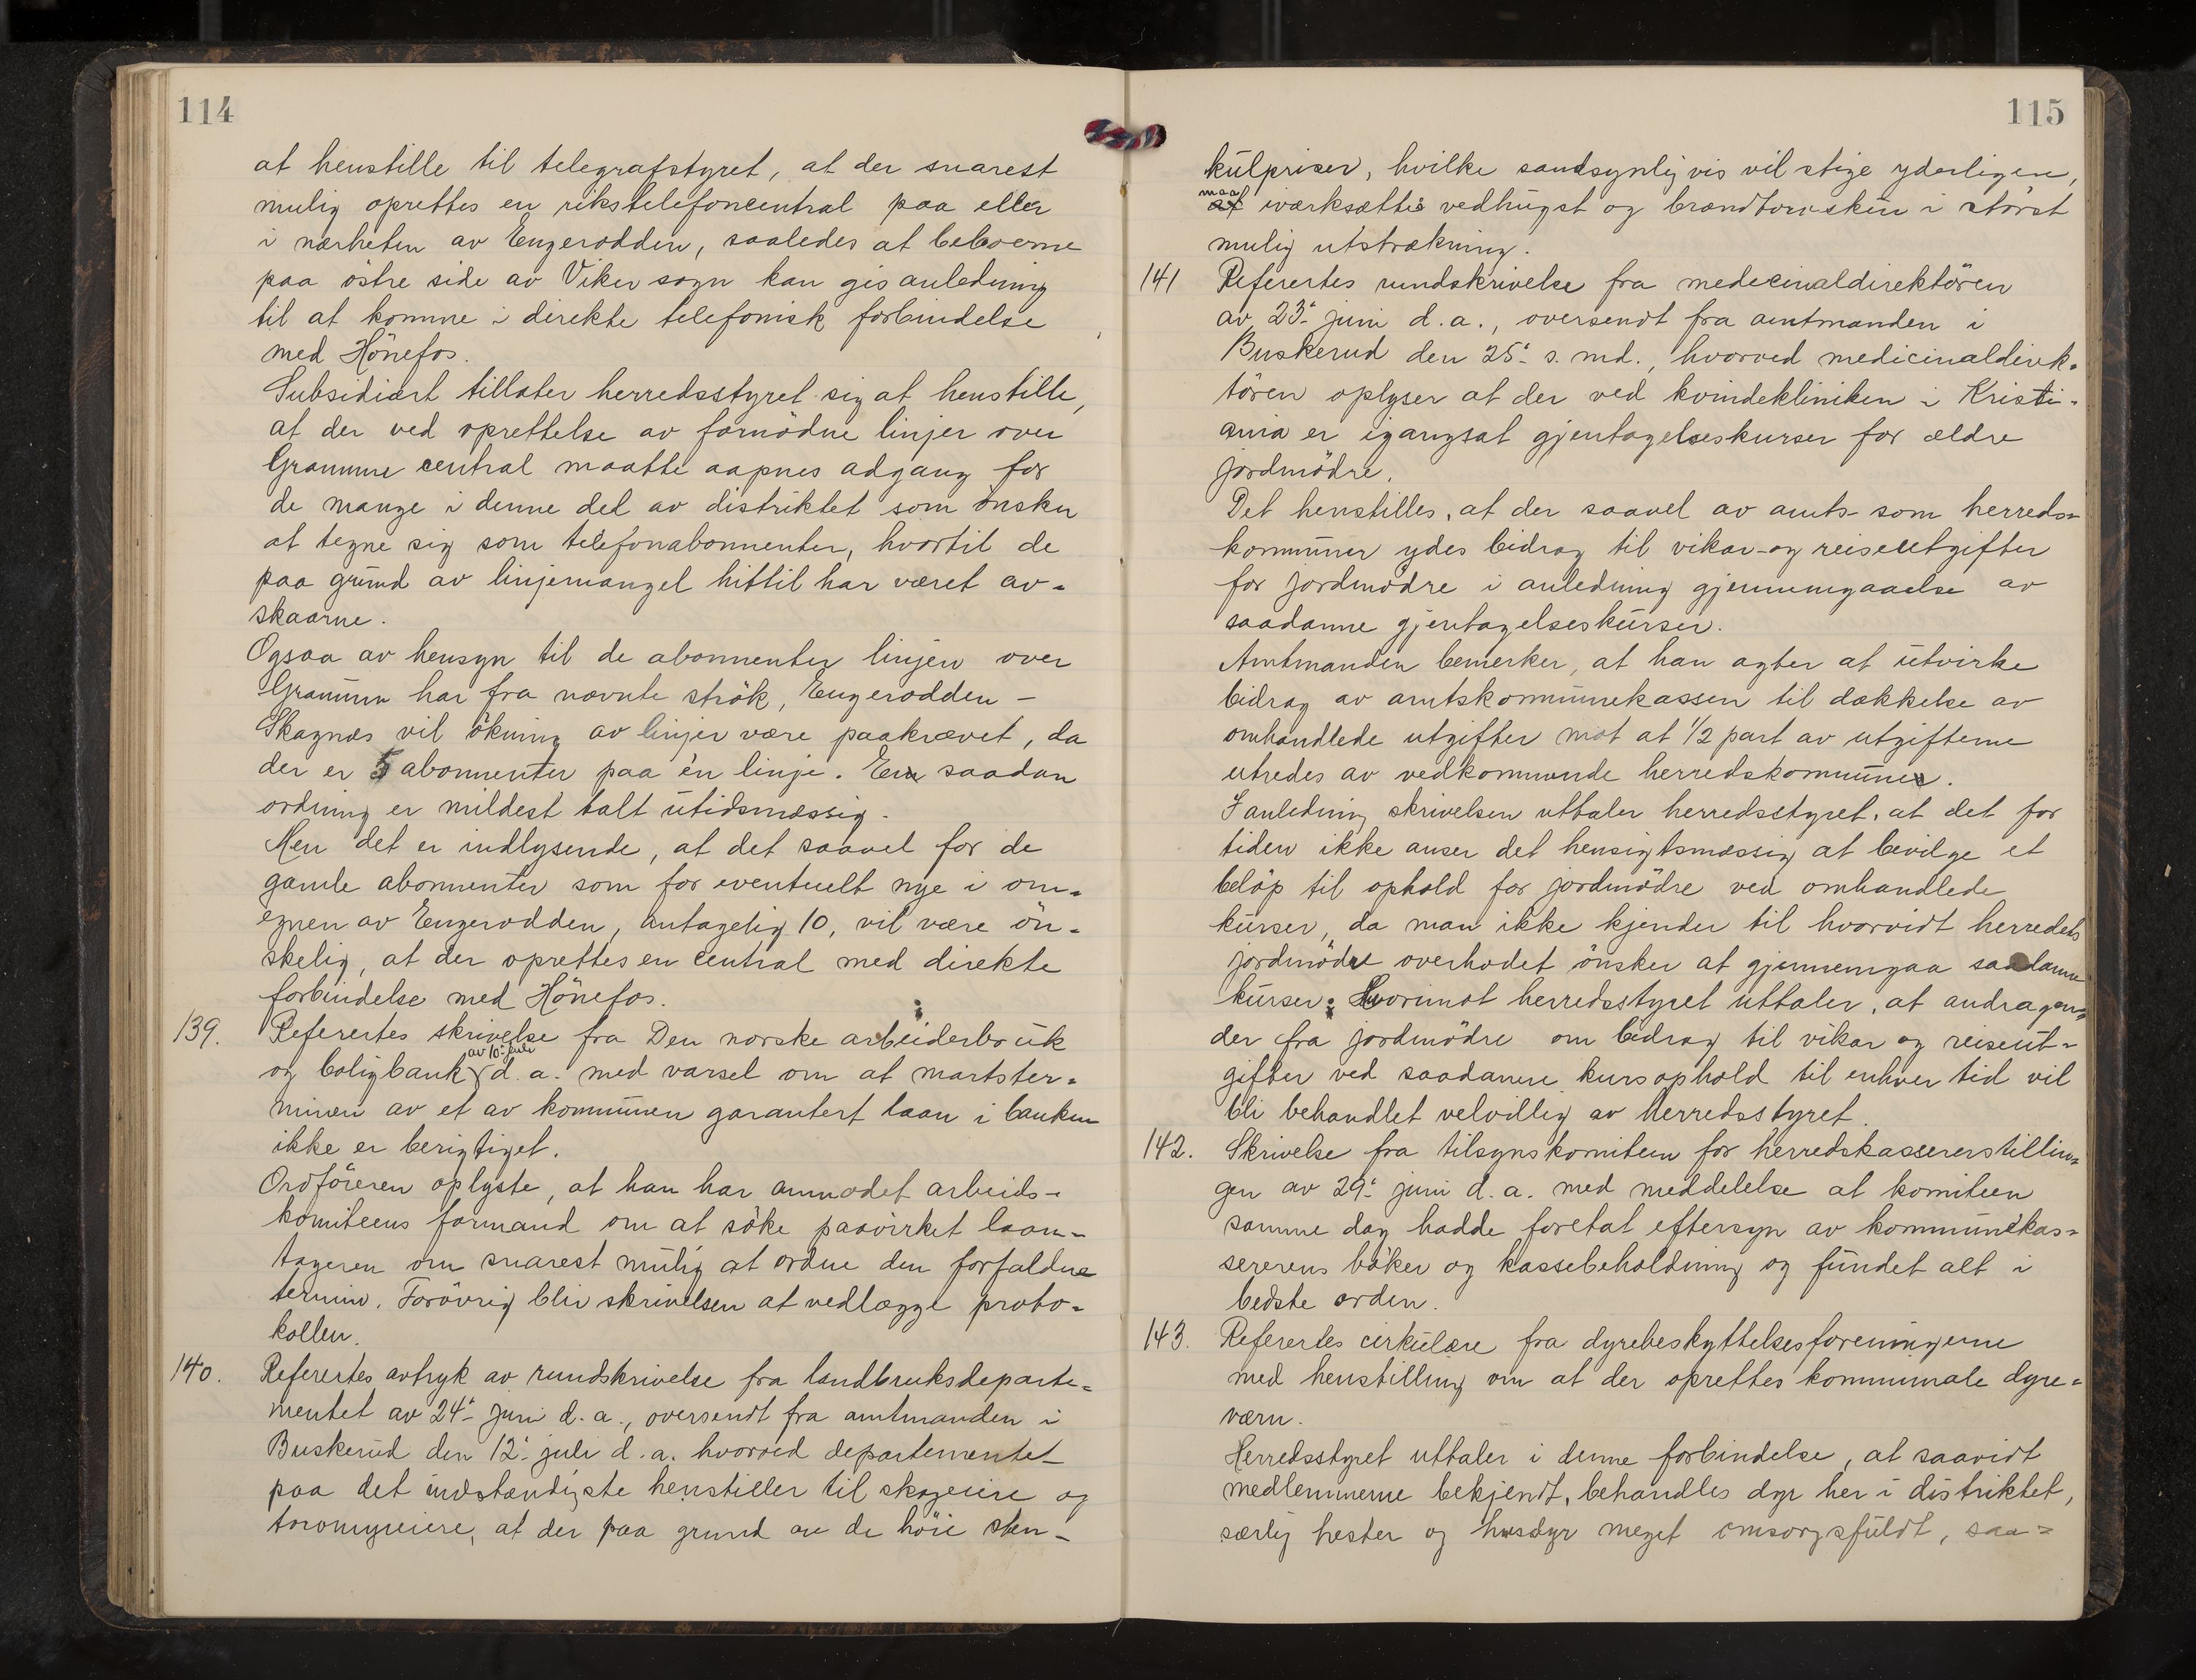 114
at henstille til telegrafstyret, at der snarest
mulig oprettes en rikstelefoncentral paa eller
i nærheten av Engerodden, saaledes at beboerne
paa østre side av Viker sogn kan gis anledning
til at komme i direkte telefonisk forbindelse
med Hönefos.
Subsidiært tillater herredsstyret sig at henstille,
at der ved oprettelse av fornödne linjer over
Gramme central maatte aapnes adgang for
de mange i denne del av distriktet som önsker
at tegne sig som telefonabonnenter, hvortil de
paa grund av linjemangel hittil har været av-
skaarne.
Ogsaa av hensyn til de abonnenter linjen over
Grammen har fra nævnte strök, Engerodden -
Skagnæs vil ökning av linjer være paakrævet, da
der er 5 abonnenter paa én linje. En saadan
ordning er mildest talt utidsmæssig.
Men det er indlysende, at det saavel for de
gamle abonnenter som for eventuelt nye i om-
egnen av Engerodden, antagelig 10, vil være ön-
skelig, at der oprettes en central med direkte
forbindelse med Hönefos.
139. Referertes skrivelse fra Den norske arbeiderbruk
og boligbank av 10. juli d. a. med varsel om at martster-
minen av et av kommunen garantert laan i banken
ikke er berigtiget.
Ordföreren oplyste, at han har anmodet arbeids-
komiteens formand om at söke paavirket laan-
tageren om snarest mulig at ordne den forfaldne
termin. Forövrig blir skrivelsen at vedlægge proto-
kollen.
140. Referertes avtryk av rundskrivelse fra landbruksdeparte-
mentet av 24. juni d. a., oversendt fra amtmanden i
Buskerud den 12. juli d. a. hvorved departementet
paa det indstændigste henstiller til skogeiere og
torvmyreiere, at der paa grund av de höie sten-
115
kulpriser, hvilke sandsynligvis vil stige yderligere,
maa iværksættes vedhugst og brændtorvskur i störst
mulig utstrækning.
141 Referertes rundskrivelse fra medicinaldirektören
av 23. juni d.a., oversendt fra amtmanden i
Buskerud den 25. s. md., hvorved medicinaldirek-
tören oplyser at der ved kvindekliniken i Kristi-
ania er igangsat gjentagelseskurser for ældre
jordmödre.
Det henstilles, at der saavel av amts- som herreds-
kommuner ydes bidrag til vikar- og reiseutgifter
for jordmödre i anledning gjennemgaaelse av
saadanne gjentagelseskurser.
Amtmanden bemerker, at han agter at utvirke
bidrag av amtskommunekassen til dækkelse av
omhandlede utgifter mot at 1/2 part av utgifterne
utredes av vedkommende herredskommune.
I anledning skrivelsen uttaler herredsstyret, at det for
tiden ikke anser det hensigtsmæssig at bevilge et
belöp til ophold for jordmödre ved omhandlede
kurser, da man ikke kjender til hvorvidt herredets
jordmödre overhodet önsker at gjennemgaa saadanne
kurser; Hvorimot herredsstyret uttaler, at andragen-
der fra jordmödre om bidrag til vikar og reiseut-
gifter ved saadanne kursophold til enhver tid vil
bli behandlet velvillig av herredsstyret.
142. Skrivelse fra tilsynskomiteen for herredskassererstillin-
gen av 29. juni d. a. med meddelelse at komiteen
samme dag hadde foretat eftersyn av kommunekas-
sererens böker og kassebeholdning og fundet alt i
bedste orden.
143. Referertes cirkulære fra dyrebeskyttelsesforeningerne
med henstilling om at der oprettes kommunale dyre-
værn.
Herredsstyret uttaler i denne forbindelse, at saavidt
medlemmerne bekjendt, behandles dyr her i distriktet,
særlig hester og husdyr meget omsorgsfuldt, saa-